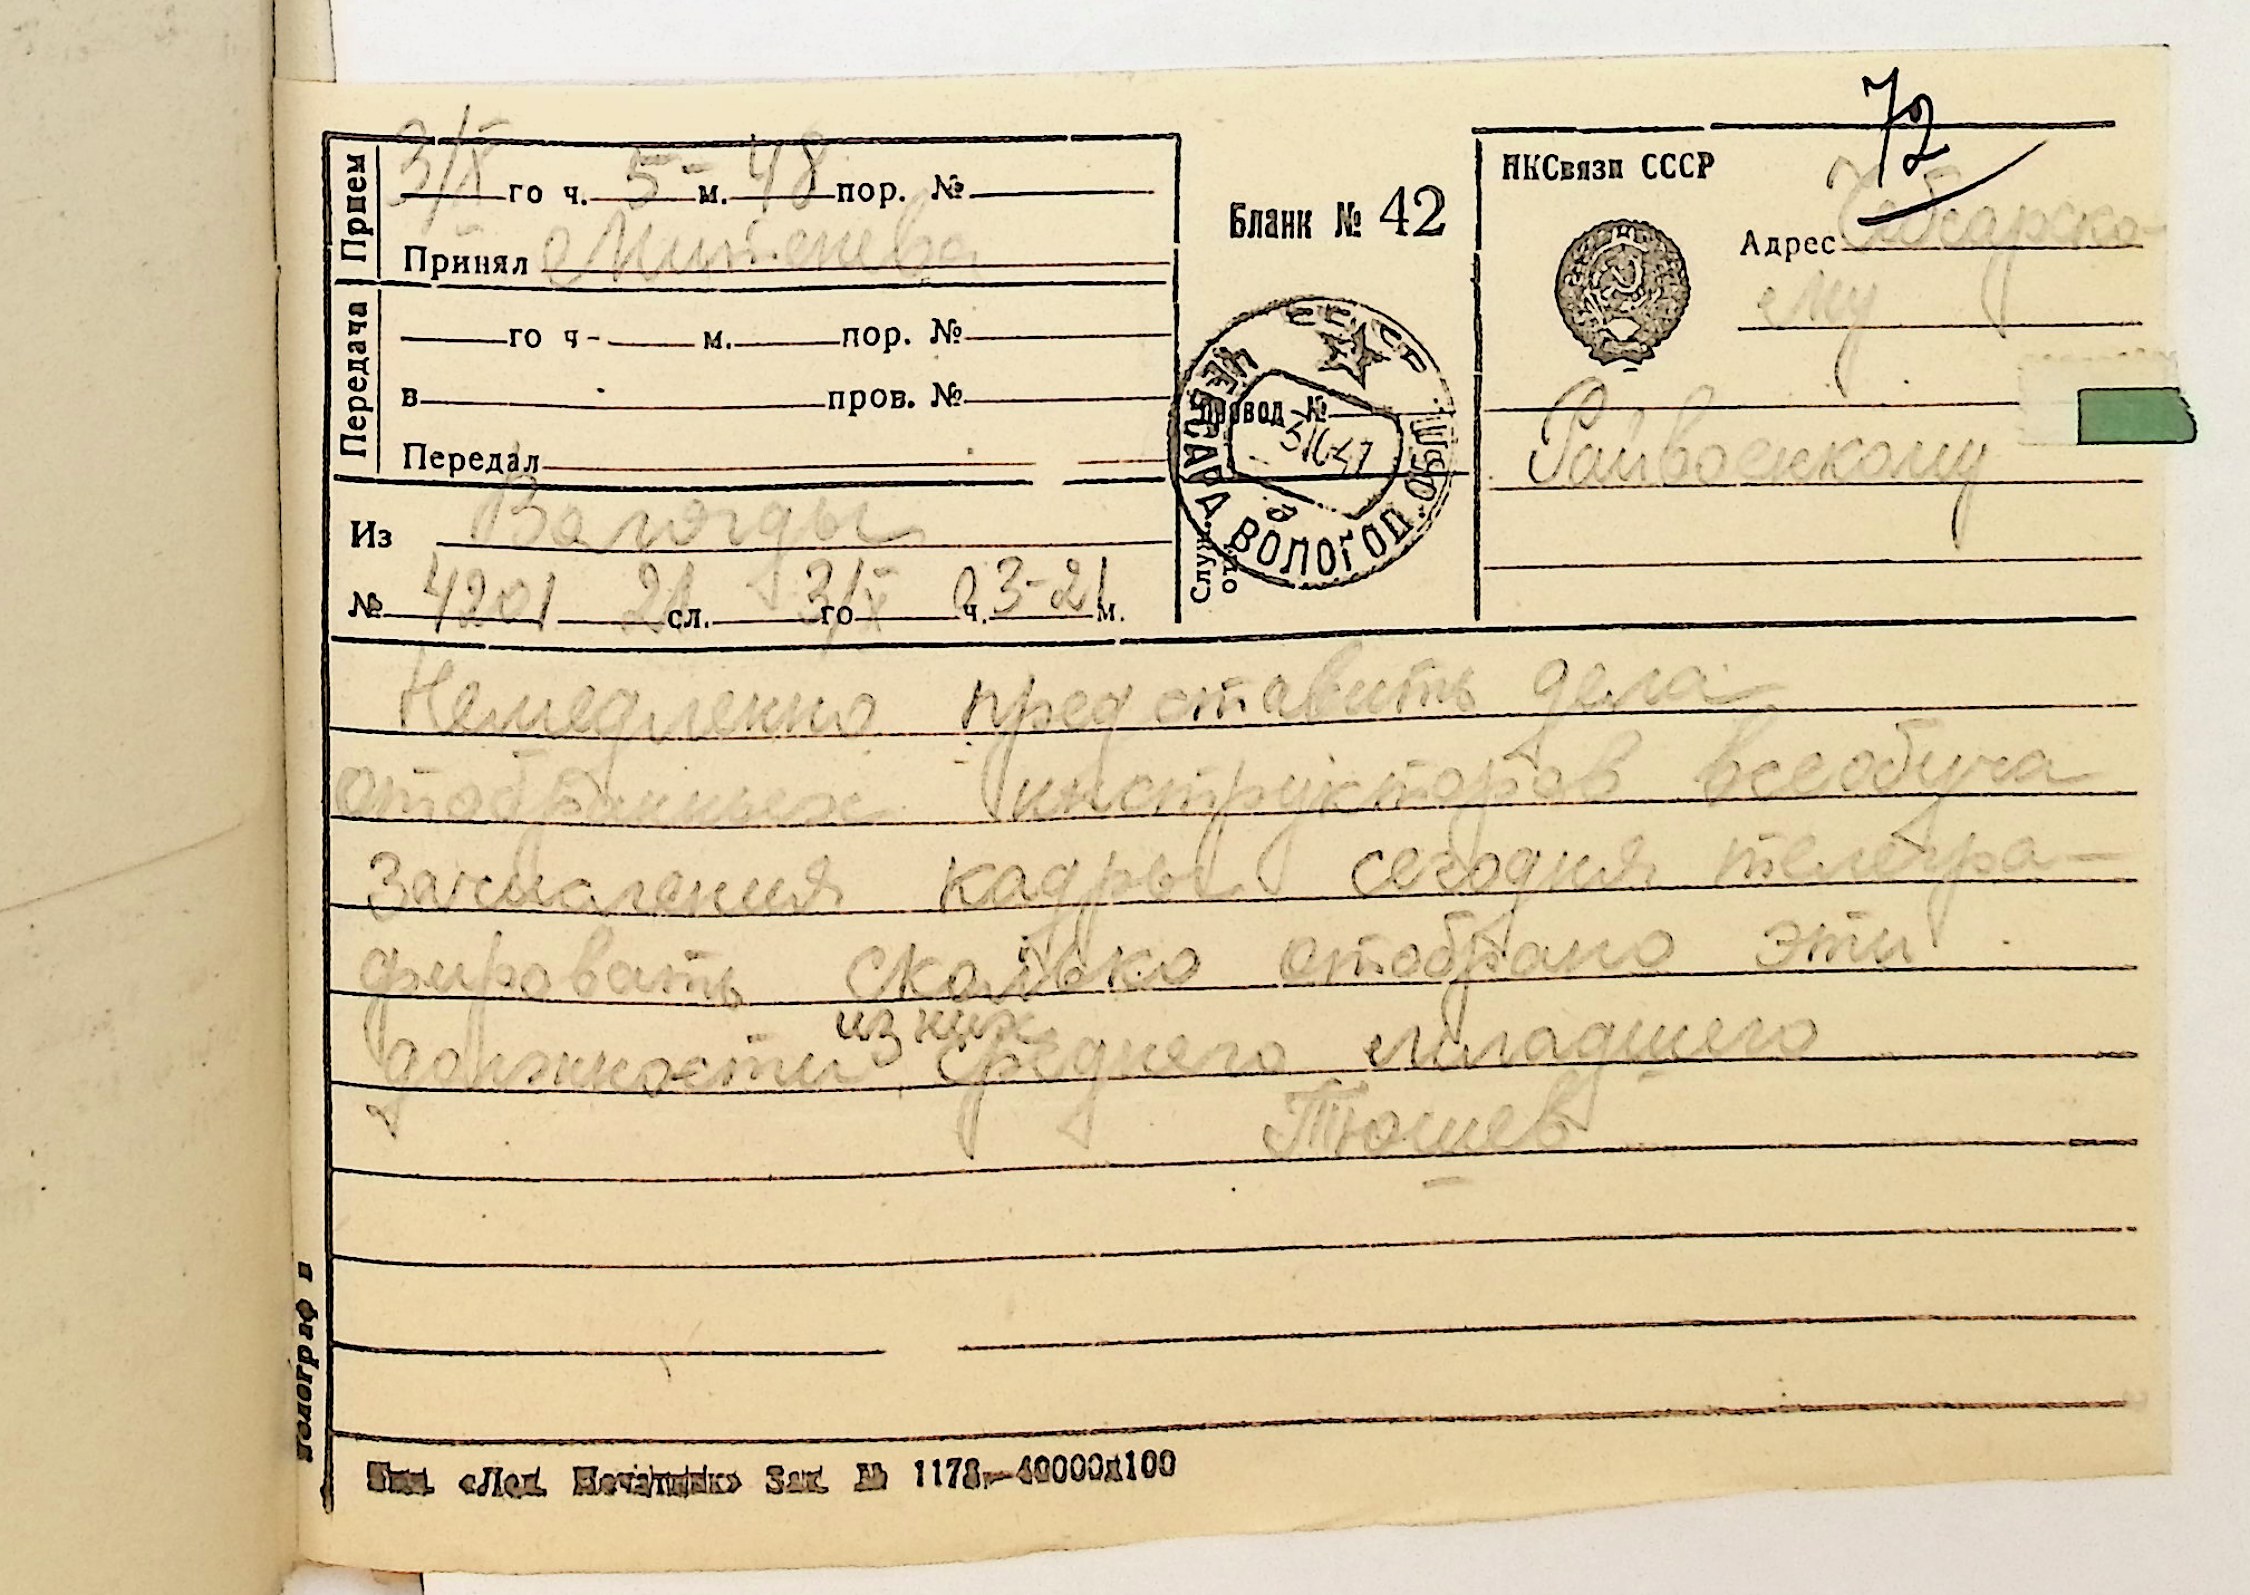 72
Прием
3/X го ч. 5- м. 48 пор. №
Принял
Передача
го ч- м. пор. №
в пров. №
Передал
Из Вологды
№ 4201 21 сл. 3/X го ч. 03-21 м.
Бланк № 42
Провод №
ЧЕБСАРА ВОЛОГОД. ОБЛ.
СССР
Служ.
НКСвязи СССР
Адрес Чебсарско-
му
Райвоенкому
Немедленно представить дела
отобранных инструкторов всеобуча
Зачисления кадры сегодня телегра-
фировать сколько отобрано эти
должности из них среднего младшего
Тюшев
Тип. «Лед. Печатник» Зак. № 1178—40000х100